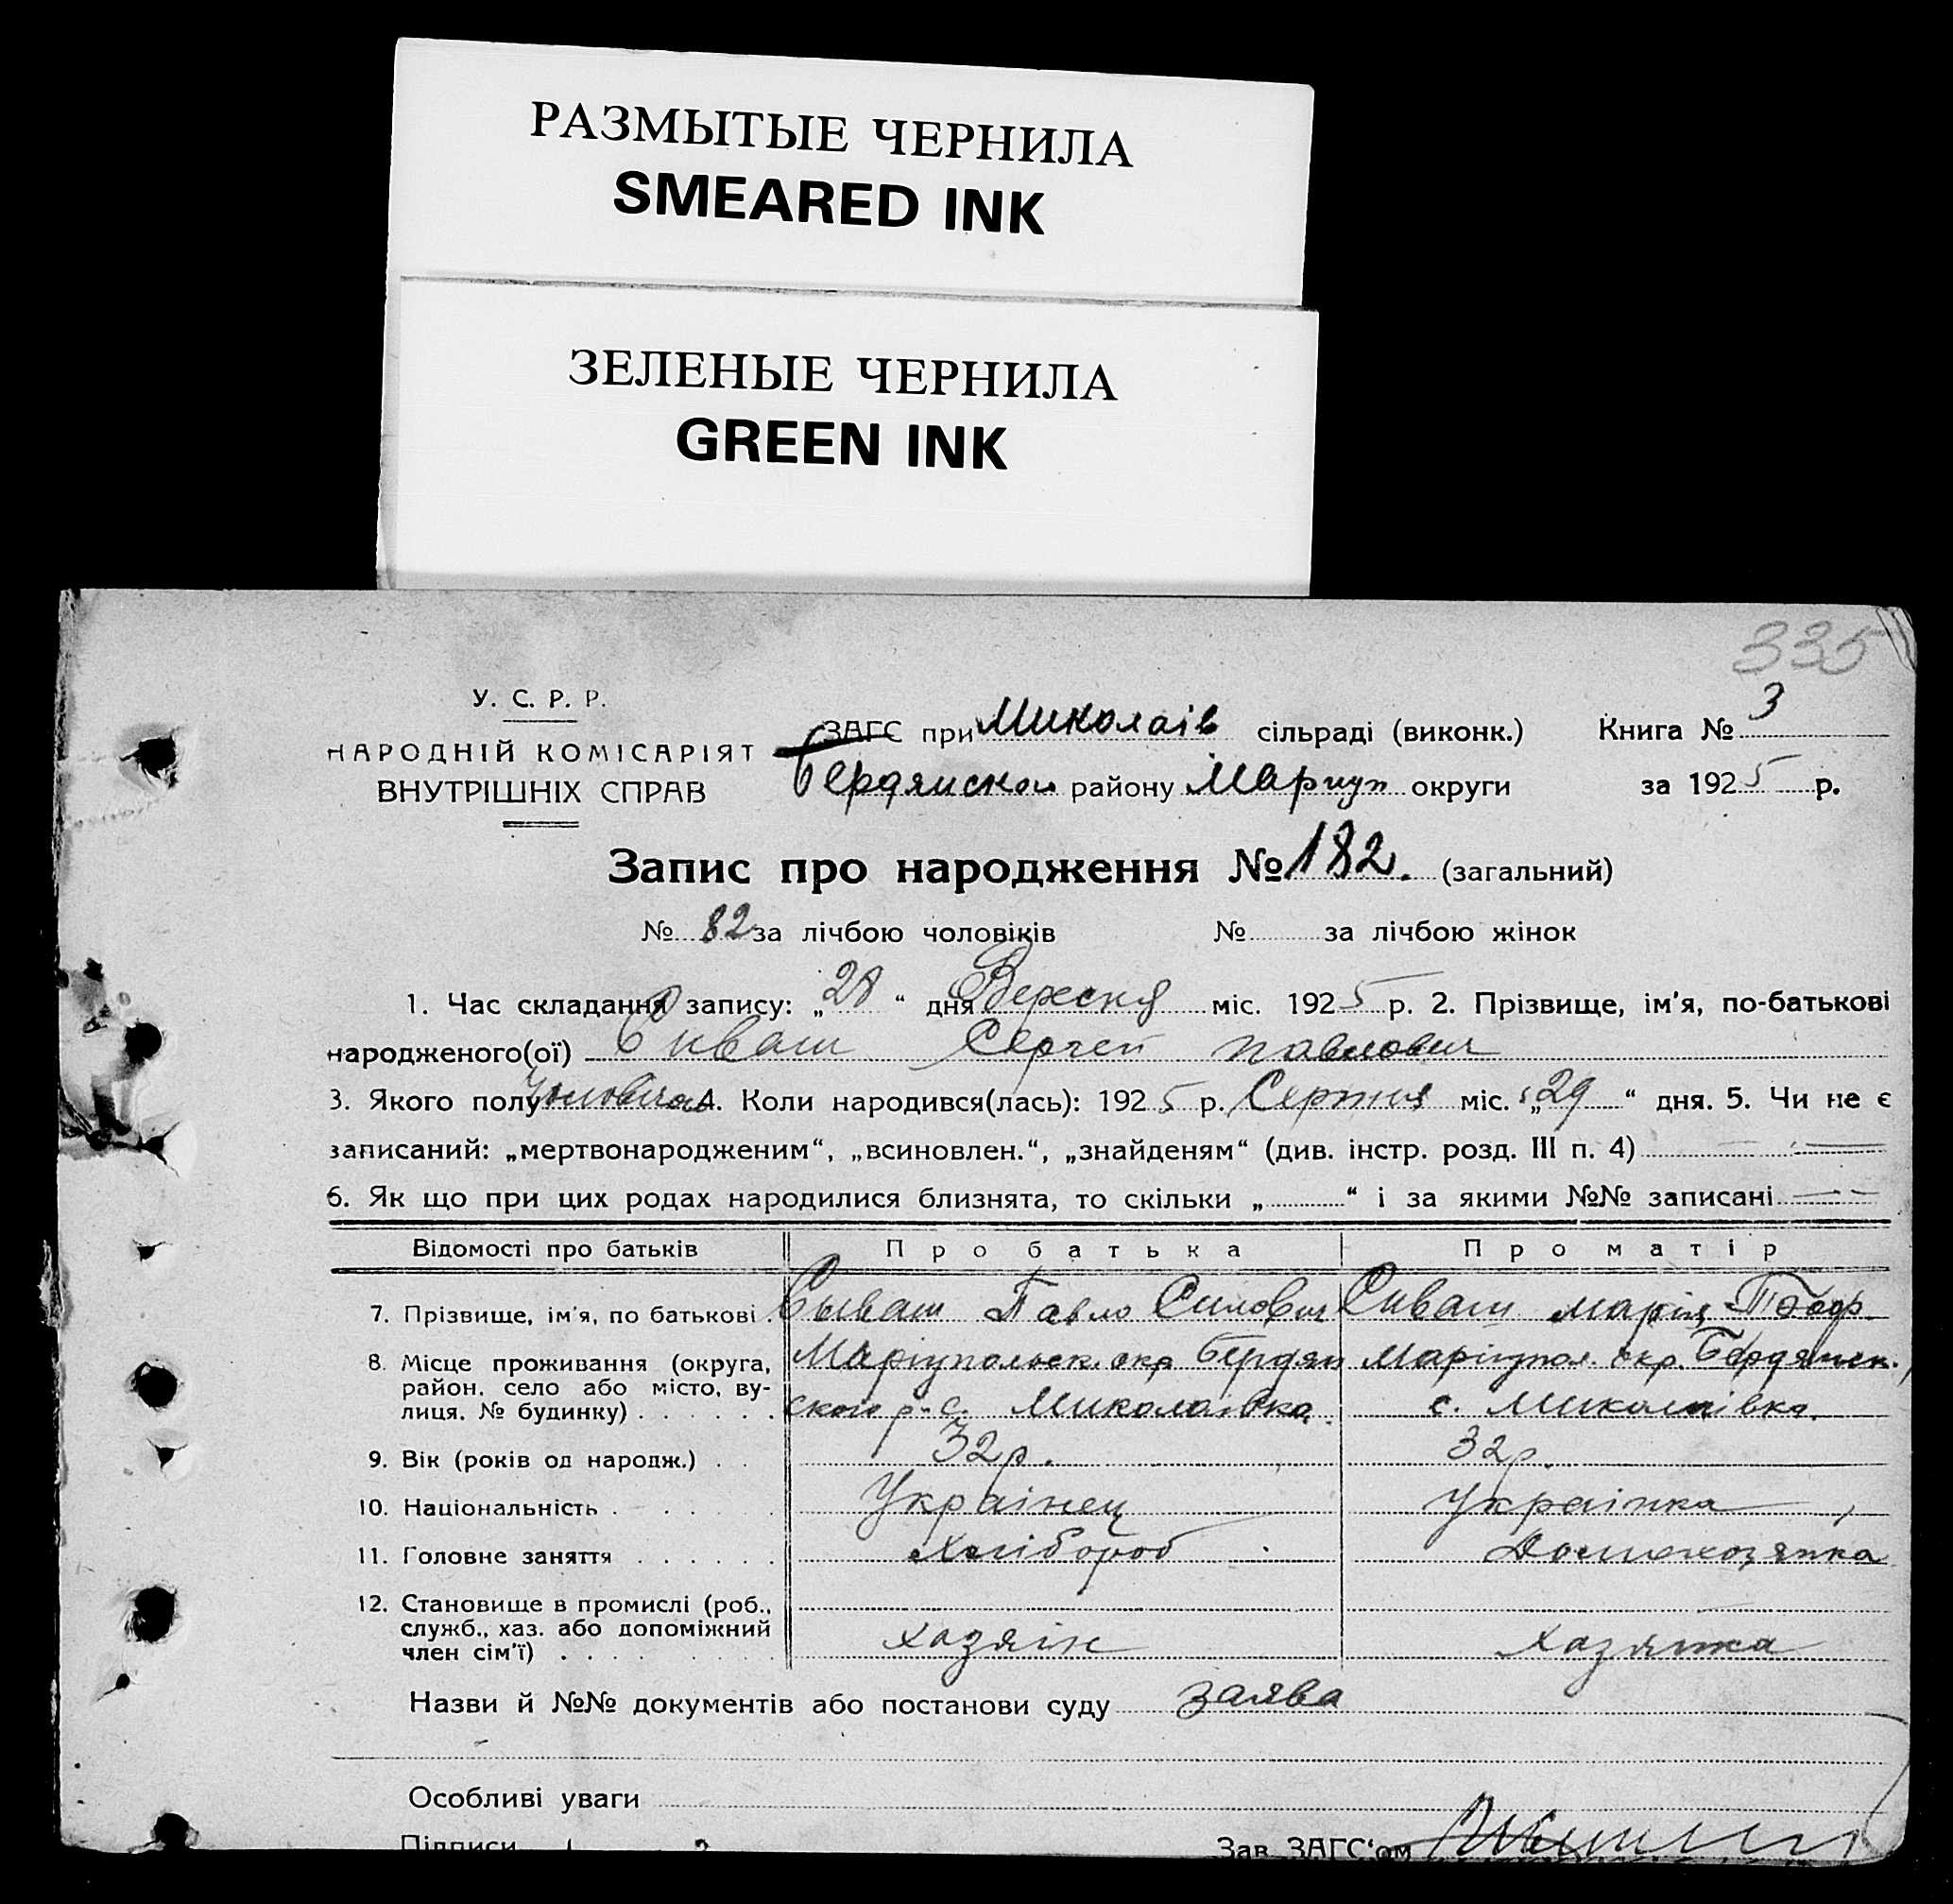 РАЗМЫТЫЕ ЧЕРНИЛА
SMEARED INK
ЗЕЛЕНЫЕ ЧЕРНИЛА
GREEN INK
335
У. С. Р. Р.
НАРОДНІЙ КОМІСАРІЯТ
ВНУТРІШНІХ СПРАВ
ЗАГС при Миколаів сільраді (виконк.) Книга № 3
Бердянской району Мариуп округи за 1925 р.
Запис про народження № 182. (загальний)
№ 82 за лічбою чоловіків № за лічбою жінок
1. Час складання запису: „28“ дня Вересня міс. 1925 р. 2. Прізвище, ім'я, по-батькові
народженого(ої) Сиваш Сергей Павлович
3. Якого полу 4. Коли народився(лась): 1925 р. Серпня міс. „29“ дня. 5. Чи не є
записаний: „мертвонародженим“, „всиновлен.“, „знайденям“ (див. інстр. розд. III п. 4)
6. Як що при цих родах народилися близнята, то скільки „ “ і за якими №№ записані
Відомості про батьків Про батька Про матір
7. Прізвище, ім'я, по батькові . Сываш Павло Силович Сиваш Марія
8. Місце проживання (округа, район. село або місто, вулиця. № будинку) . . . . . . Маріупольск. окр Бердянского р. с. Миколаівка. Маріупол. окр. Бердянск., с. Миколаівка.
9. Вік (років од народж.) . . 32 р. 32 р.
10. Національність . . . . . Украінец Украінка
11. Головне заняття . . . . . . Хлібороб Домохозяйка
12. Становище в промислі (роб., служб., хаз. або допоміжний член сім'ї) . . . . . . . . хазяін хазяйка
Назви й №№ документів або постанови суду заява
Особливі уваги
Підписи Зав. ЗАГС'ом